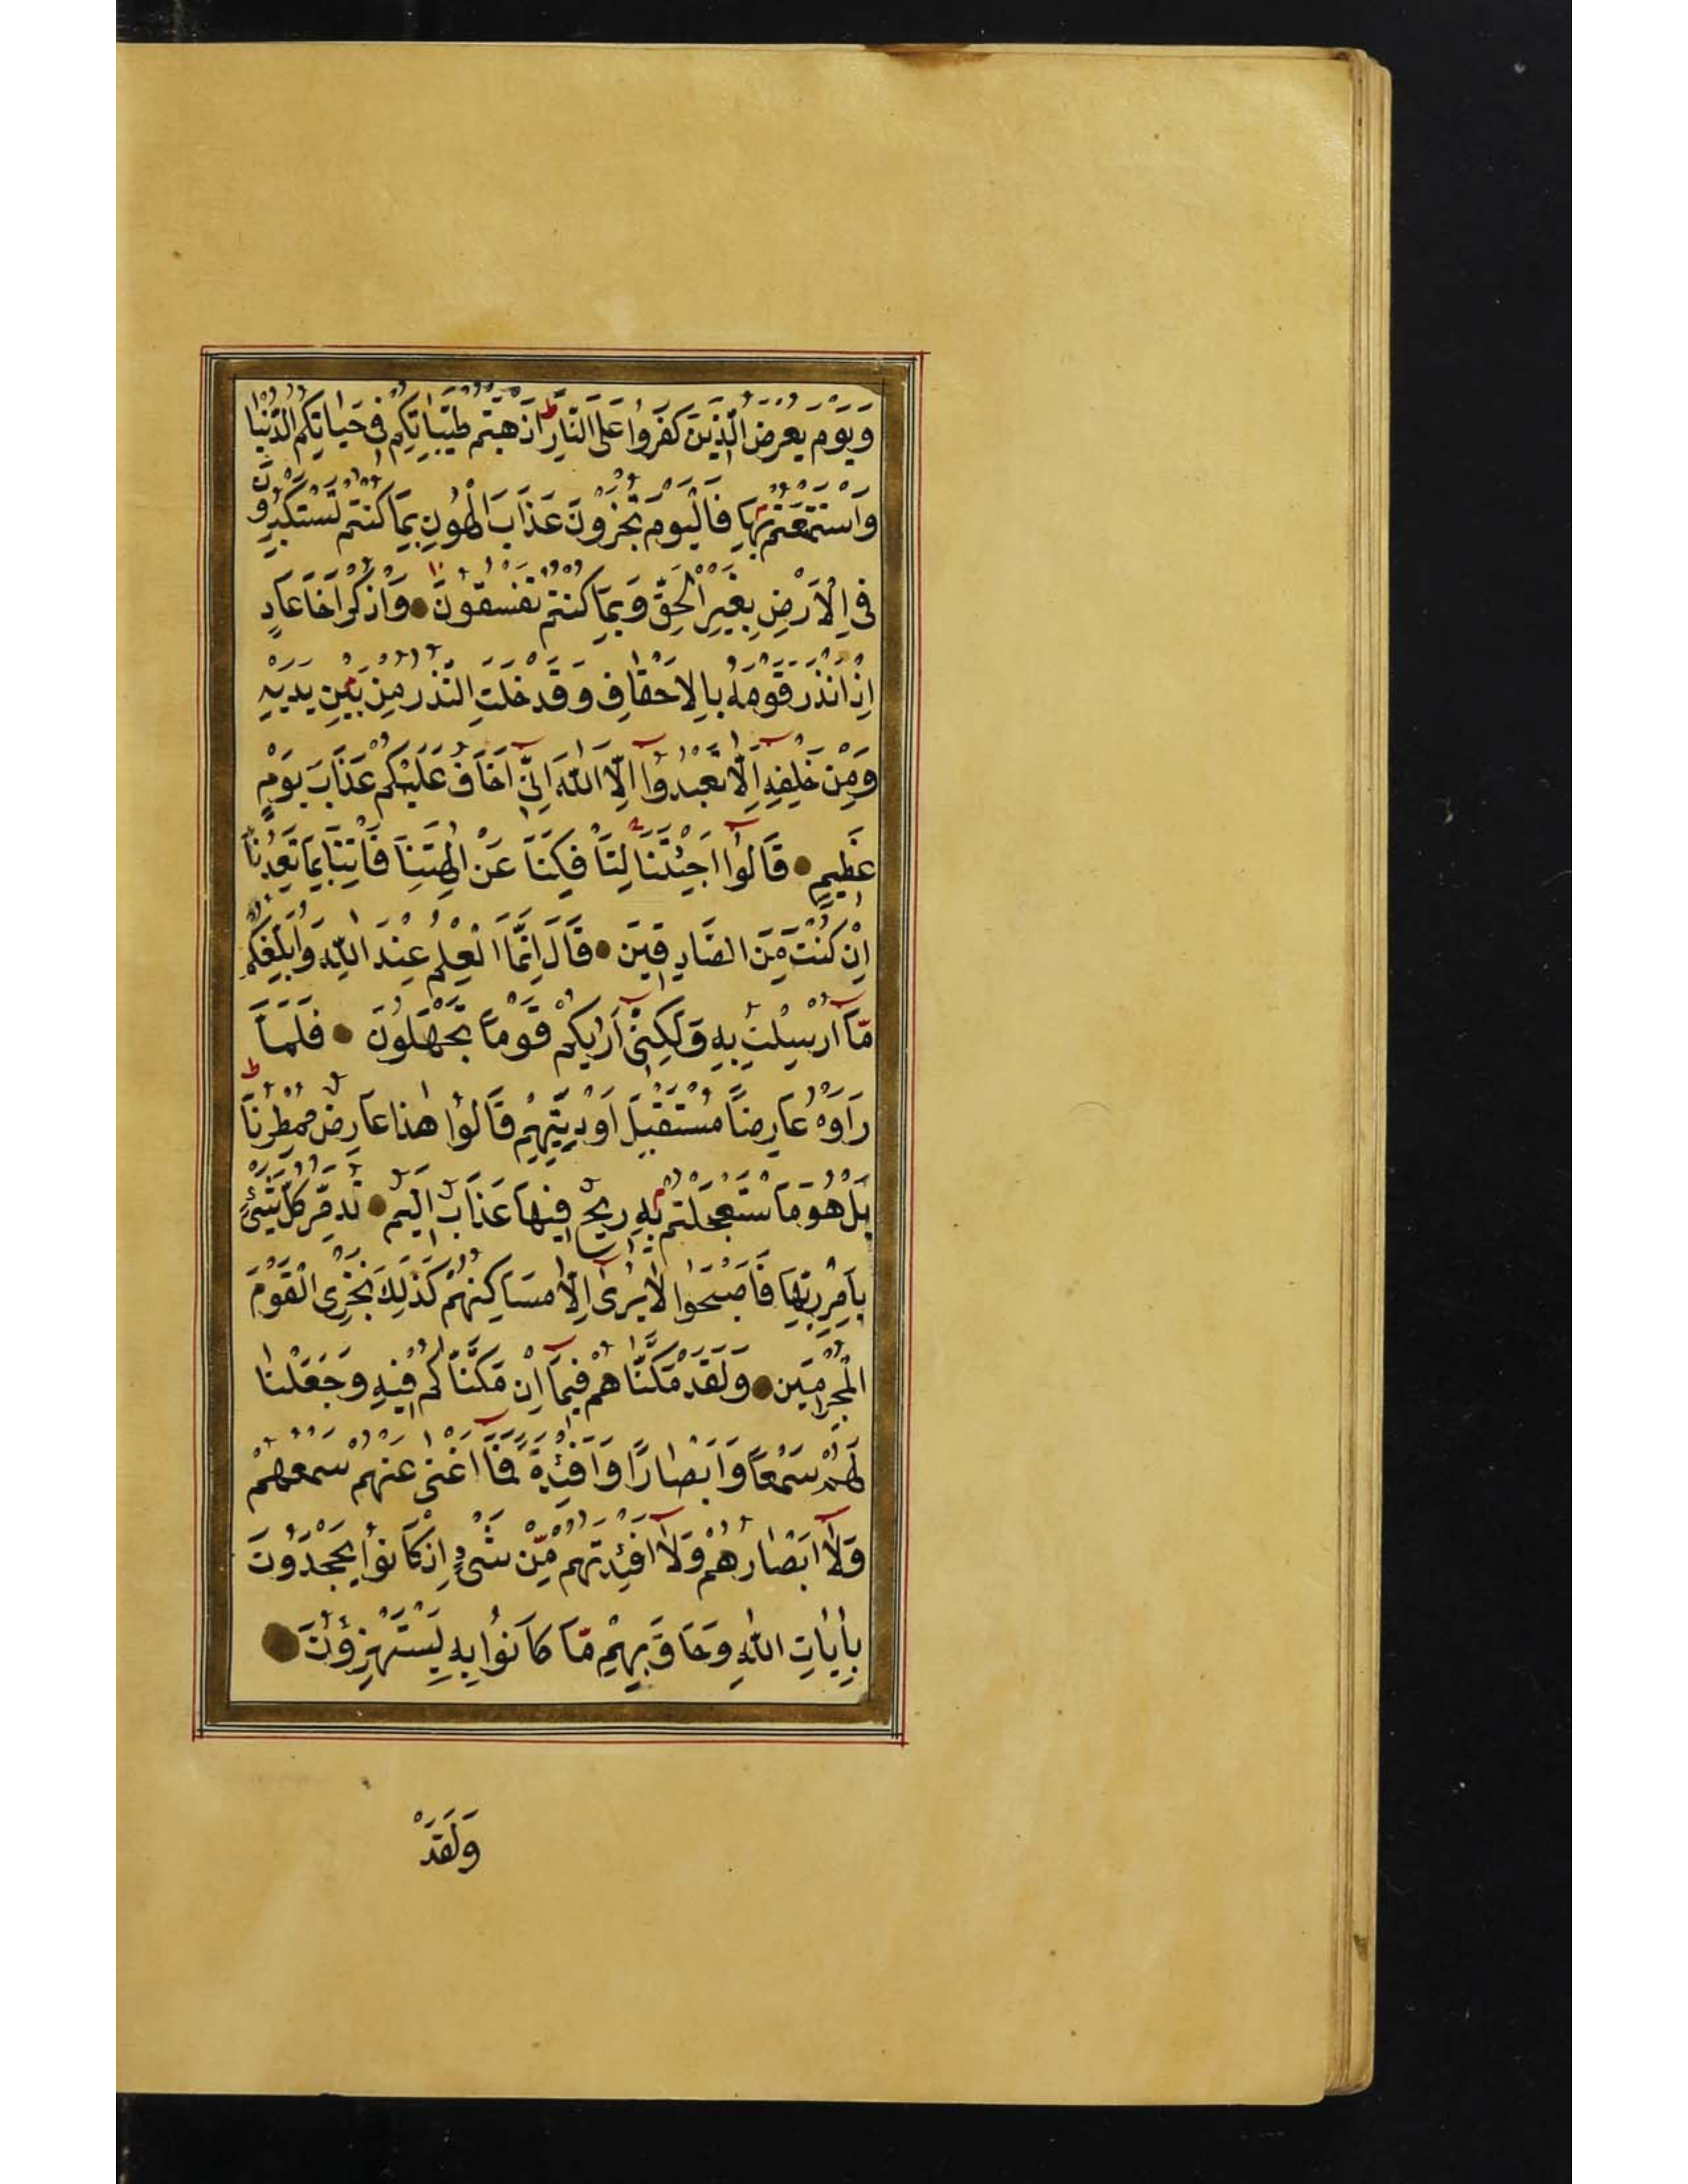 وَيَوْمَ يُعْرَضُ الَّذِينَ كَفَرُوا عَلَى النَّارِ اَذْهَبْتُمْ طَيِّبَاتِكُمْ فِى حَيَاتِكُمُ الدُّنْيَا
وَاسْتَمْتَعْتُمْ بِهَا فَالْيَوْمَ تُجْزَوْنَ عَذَابَ الْهُونِ بِمَا كُنْتُمْ تَسْتَكْبِرُونَ
فِى الْاَرْضِ بِغَيْرِ الْحَقِّ وَبِمَا كُنْتُمْ تَفْسُقُونَ وَاذْكُرْ اَخَا عَادٍ
اِذْ اَنْذَرَ قَوْمَهُ بِالْاَحْقَافِ وَقَدْ خَلَتِ النُّذُرُ مِنْ بَيْنِ يَدَيْهِ
وَمِنْ خَلْفِهِ اَلَّا تَعْبُدُوٓا اِلَّا اللّٰهَ اِنِّىٓ اَخَافُ عَلَيْكُمْ عَذَابَ يَوْمٍ
عَظِيمٍ قَالُوٓا اَجِئْتَنَا لِتَأْفِكَنَا عَنْ اٰلِهَتِنَا فَأْتِنَا بِمَا تَعِدُنَا
اِنْ كُنْتَ مِنَ الصَّادِقِينَ قَالَ اِنَّمَا الْعِلْمُ عِنْدَ اللّٰهِ وَاُبَلِّغُكُمْ
مَّآ اُرْسِلْتُ بِهِ وَلٰكِنِّىٓ اَرٰيكُمْ قَوْمًا تَجْهَلُونَ فَلَمَّا
رَاَوْهُ عَارِضًا مُسْتَقْبِلَ اَوْدِيَتِهِمْ قَالُوا هٰذَا عَارِضٌ مُمْطِرُنَا
بَلْ هُوَ مَا اسْتَعْجَلْتُمْ بِهِ رِيحٌ فِيهَا عَذَابٌ اَلِيمٌ تُدَمِّرُ كُلَّ شَىْءٍ
بِاَمْرِ رَبِّهَا فَاَصْبَحُوا لَا يُرٰىٓ اِلَّا مَسَاكِنُهُمْ كَذٰلِكَ نَجْزِى الْقَوْمَ
الْمُجْرِمِينَ وَلَقَدْ مَكَّنَّاهُمْ فِيمَآ اِنْ مَكَّنَّاكُمْ فِيهِ وَجَعَلْنَا
لَهُمْ سَمْعًا وَاَبْصَارًا وَاَفْئِدَةً فَمَآ اَغْنٰى عَنْهُمْ سَمْعُهُمْ
وَلَآ اَبْصَارُهُمْ وَلَآ اَفْئِدَتُهُمْ مِّنْ شَىْءٍ اِذْ كَانُوا يَجْحَدُونَ
بِاٰيَاتِ اللّٰهِ وَحَاقَ بِهِمْ مَّا كَانُوا بِهِ يَسْتَهْزِؤُنَ
وَلَقَدْ